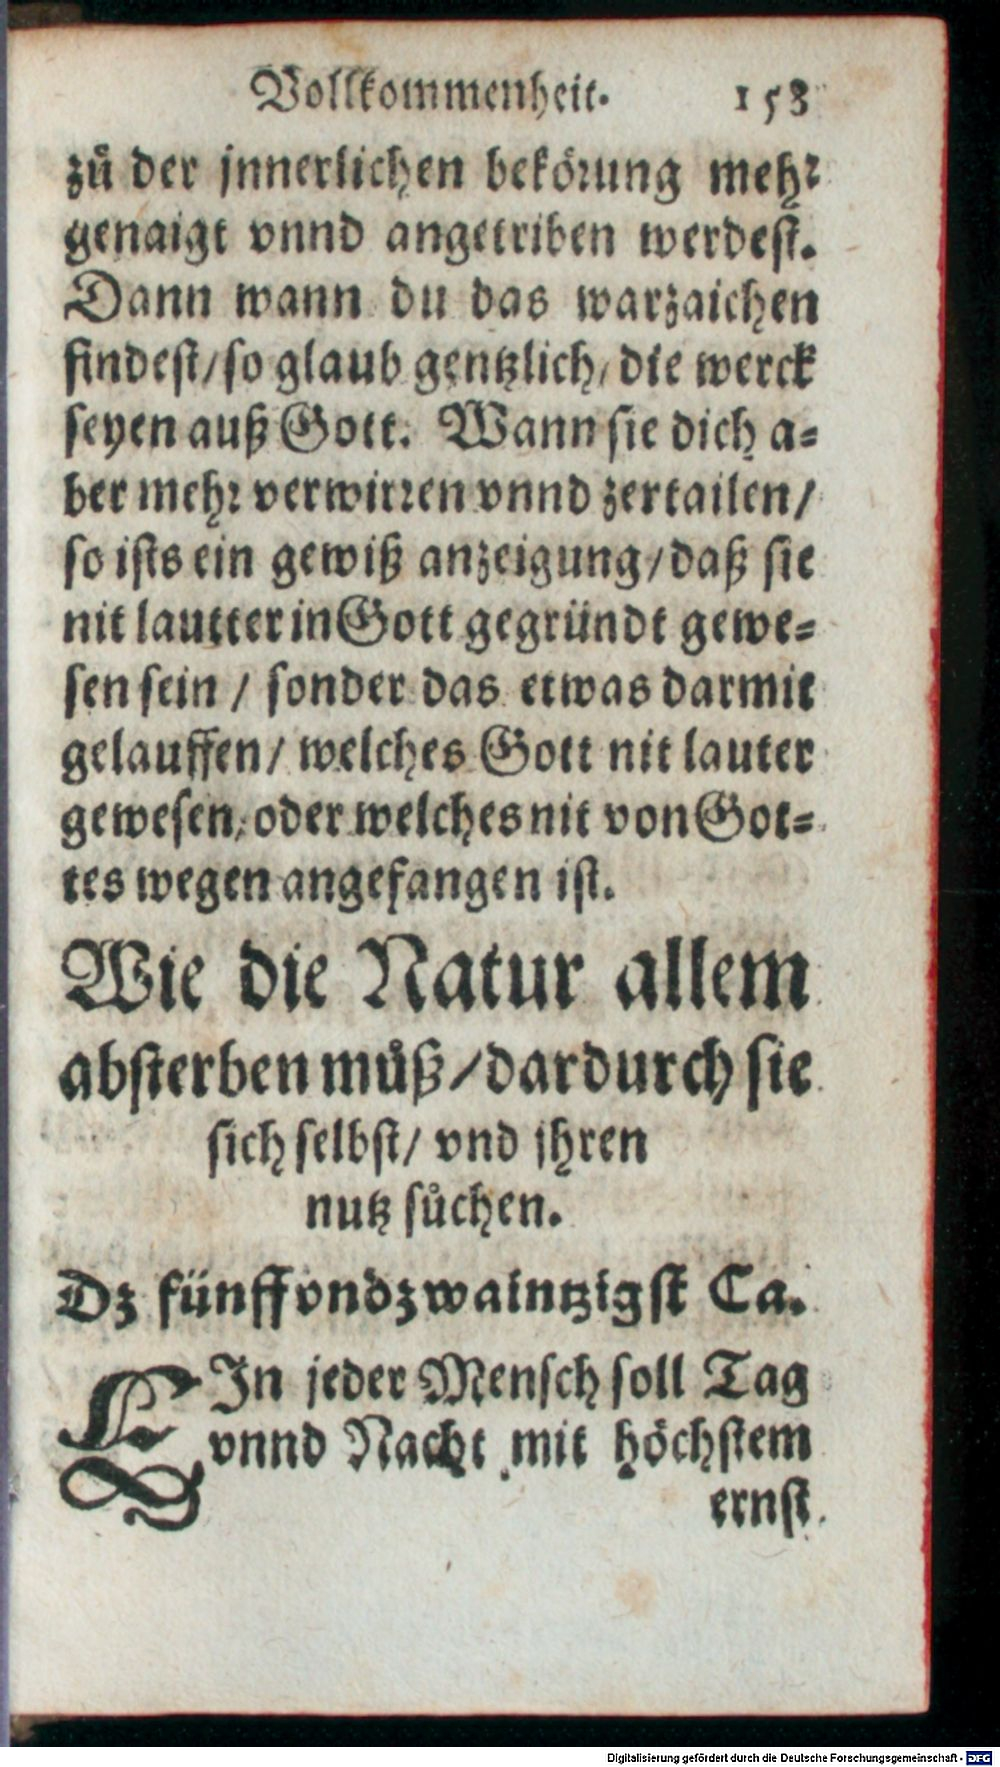 Vollkommenheit. 158
zů der jnnerlichen bekörung mehr
genaigt vnnd angetriben werdest.
Dann wann du das warzaichen
findest/ so glaub gentzlich/ die werck
seyen auß Gott. Wann sie dich a-
ber mehr verwirren vnnd zertailen/
so ists ein gewiß anzeigung/ daß sie
nit lautter in Gott gegründt gewe-
sen sein / sonder das etwas darmit
gelauffen/ welches Gott nit lauter
gewesen, oder welches nit von Got-
tes wegen angefangen ist.
Wie die Natur allem
absterben můß/ dardurch sie
sich selbst/ vnd jhren
nutz sůchen.
Dz fünffvndzwaintzigst Ca.
EIn jeder Mensch soll Tag
vnnd Nacht mit höchstem
ernst
Digitalisierung gefördert durch die Deutsche Forschungsgemeinschaft - DFG